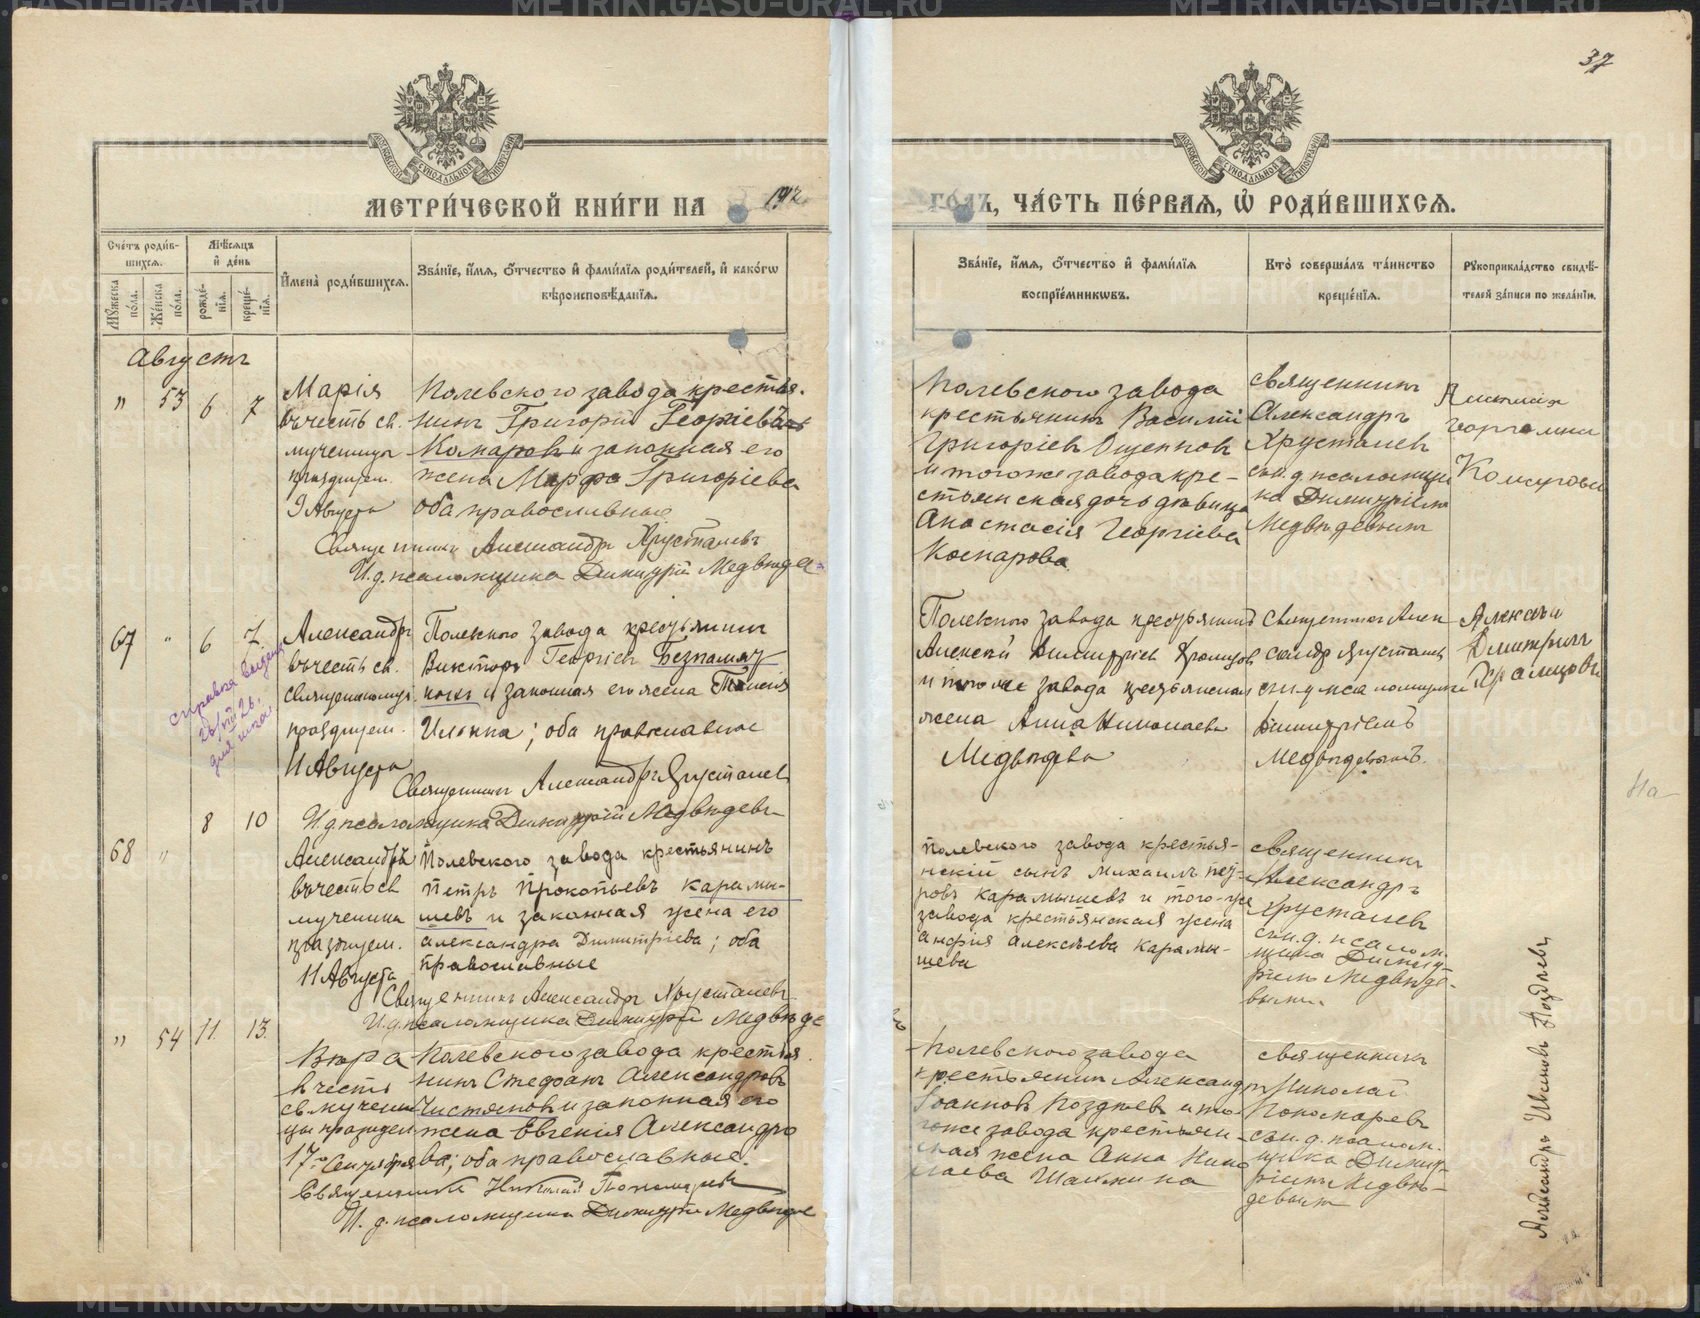 37
МЕТРИ́ЧЕСКОЙ КНИ́ГИ НА 1912 ГО́ДЪ, ЧА́СТЬ ПЕ́РВАѦ, Ѡ҆ РОДИ́ВШИХСѦ.
Сче́тъ роди́в-
шихсѧ.
Мꙋ́жеска по́ла.
Же́нска по́ла.
Мѣ́сѧцъ
и҆ де́нь
рожде́-
нїѧ.
креще́-
нїѧ.
И҆мена̀ роди́вшихсѧ.
Зва́нїе, и҆́мѧ, ѻ҆́тчество и҆ фами́лїѧ роди́телей, и҆ како́гѡ
вѣроисповѣ́данїѧ.
Зва́нїе, и҆́мѧ, ѻ҆́тчество и҆ фами́лїѧ
воспрїе́мникѡвъ.
Кто̀ соверша́лъ та́инство
креще́нїѧ.
Рꙋкоприкла́дство свидѣ́-
телей за́писи по жела́нїю.
Августъ
" 53 6 7
Марія
въ честь св.
мученицы
празднуем.
9 Августа
Полевского завода крестья-
нинъ Григорій Георгіевъ
Комаровъ и законная его
жена Марфа Григоріева
оба православные
Священникъ Александръ Хрусталевъ
И.д. псаломщика Димитрій Медведе
Полевского завода
крестьянинъ Василій
Григоріевъ Ощепковъ
и тогоже завода кре-
стьянская дочь девица
Анастасія Георгіева
Комарова
Священникъ
Александръ
Хрусталевъ
съ и.д. псаломщи
ка Димитріемъ
Медведевымъ
67 " 6 7
Александръ
въ честь св.
священномуч.
празднуем.
11 Августа
Полевского завода крестьянинъ
Викторъ Георгіевъ Безпамят
ныхъ и законная его жена Таисія
Ильина; оба православные
Священникъ Александръ Хрусталевъ
И.д. псаломщика Димитрій Медведевъ
справка выдана
26/VIII 26,
для
Полевского завода крестьянинъ
Алексей Димитріевъ Храмцовъ
и того же завода крестьянская
жена Анна Николаева
Медведева
Священникъ Алек
сандръ Хрусталевъ
съ и.д. псаломщика
Димитріемъ
Медведевымъ.
Алексей
Дмитриев
Храмцовъ
68 " 8 10
Александръ
въ честь св
мученика
празднуем.
11 Августа
Полевского завода крестьянинъ
Петръ Прокопьевъ Карамы-
шевъ и законная жена его
Александра Димитріева; оба
православные
Священникъ Александръ Хрусталевъ
И.д. псаломщика Димитрій Медведе
Полевского завода крестья-
нскій сынъ Михаилъ Пет-
ровъ Карамышевъ и того-же
завода крестьянская жена
Алексеева Карамы-
шева
Священникъ
Александръ
Хрусталевъ
съ и.д. псалом.
щика Димит
ріемъ Медведе-
вымъ.
" 54 11 13.
Вера
въ честь
св. мучени
цы празднуем
17го Сентября
Полевского завода крестья.
нинъ Стефанъ Александровъ
Чистяковъ и законная его
жена Евгенія Александро
ва; оба православные.
Священникъ Николай Пономаревъ
И. д. псаломщика Димитрій Медведе
Полевского завода
крестьянинъ Александръ
Іоанновъ Позднеевъ и то-
гоже завода крестьян-
ская жена Анна Нико
лаева
Священникъ
Николай
Пономаревъ
съ и.д. псалом.
щика Димит-
ріемъ Медве-
девымъ
Александръ Ивановъ
METRIKI.GASO-URAL.RU